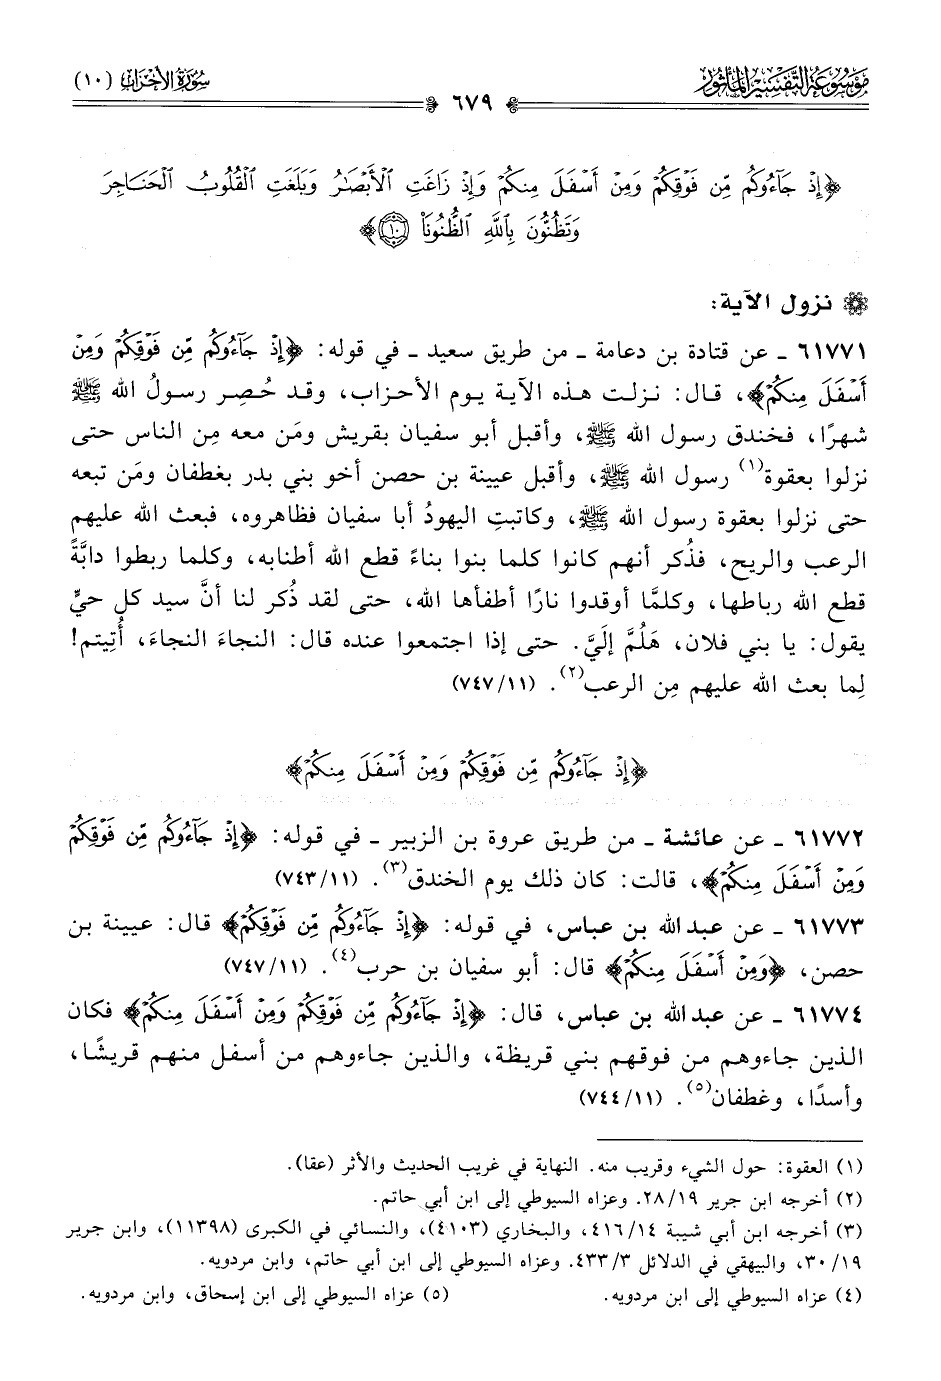 موسوعة التفسير المأثور
سورة الأحزاب (١٠)
٦٧٩
﴿إِذْ جَآءُوكُم مِّن فَوْقِكُمْ وَمِنْ أَسْفَلَ مِنكُمْ وَإِذْ زَاغَتِ ٱلْأَبْصَٰرُ وَبَلَغَتِ ٱلْقُلُوبُ ٱلْحَنَاجِرَ
وَتَظُنُّونَ بِٱللَّهِ ٱلظُّنُونَا۠ ١٠﴾
نزول الآية:
٦١٧٧١ ـ عن قتادة بن دعامة ـ من طريق سعيد ـ في قوله: ﴿إِذْ جَآءُوكُم مِّن فَوْقِكُمْ وَمِنْ
أَسْفَلَ مِنكُمْ﴾، قال: نزلت هذه الآية يوم الأحزاب، وقد حُصِر رسولُ الله ﷺ
شهرًا، فخندق رسول الله ﷺ، وأقبل أبو سفيان بقريش ومَن معه مِن الناس حتى
نزلوا بعقوة(١) رسول الله ﷺ، وأقبل عيينة بن حصن أخو بني بدر بغطفان ومَن تبعه
حتى نزلوا بعقوة رسول الله ﷺ، وكاتبتِ اليهودُ أبا سفيان فظاهروه، فبعث الله عليهم
الرعب والريح، فذُكر أنهم كانوا كلما بنوا بناءً قطع الله أطنابه، وكلما ربطوا دابَّةً
قطع الله رباطها، وكلمَّا أوقدوا نارًا أطفأها الله، حتى لقد ذُكر لنا أنَّ سيد كل حيٍّ
يقول: يا بني فلان، هَلُمَّ إلَيَّ. حتى إذا اجتمعوا عنده قال: النجاءَ النجاءَ، أُتِيتم!
لِما بعث الله عليهم مِن الرعب(٢). (١١/٧٤٧)
﴿إِذْ جَآءُوكُم مِّن فَوْقِكُمْ وَمِنْ أَسْفَلَ مِنكُمْ﴾
٦١٧٧٢ ـ عن عائشة ـ من طريق عروة بن الزبير ـ في قوله: ﴿إِذْ جَآءُوكُم مِّن فَوْقِكُمْ
وَمِنْ أَسْفَلَ مِنكُمْ﴾، قالت: كان ذلك يوم الخندق(٣). (١١/٧٤٣)
٦١٧٧٣ ـ عن عبد الله بن عباس، في قوله: ﴿إِذْ جَآءُوكُم مِّن فَوْقِكُمْ﴾ قال: عيينة بن
حصن، ﴿وَمِنْ أَسْفَلَ مِنكُمْ﴾ قال: أبو سفيان بن حرب(٤). (١١/٧٤٧)
٦١٧٧٤ ـ عن عبد الله بن عباس، قال: ﴿إِذْ جَآءُوكُم مِّن فَوْقِكُمْ وَمِنْ أَسْفَلَ مِنكُمْ﴾ فكان
الذين جاءوهم من فوقهم بني قريظة، والذين جاءوهم من أسفل منهم قريشًا،
وأسدًا، وغطفان(٥). (١١/٧٤٤)
(١) العقوة: حول الشيء وقريب منه. النهاية في غريب الحديث والأثر (عقا).
(٢) أخرجه ابن جرير ١٩/٢٨. وعزاه السيوطي إلى ابن أبي حاتم.
(٣) أخرجه ابن أبي شيبة ١٤/٤١٦، والبخاري (٤١٠٣)، والنسائي في الكبرى (١١٣٩٨)، وابن جرير
١٩/٣٠، والبيهقي في الدلائل ٣/٤٣٣. وعزاه السيوطي إلى ابن أبي حاتم، وابن مردويه.
(٤) عزاه السيوطي إلى ابن مردويه.
(٥) عزاه السيوطي إلى ابن إسحاق، وابن مردويه.